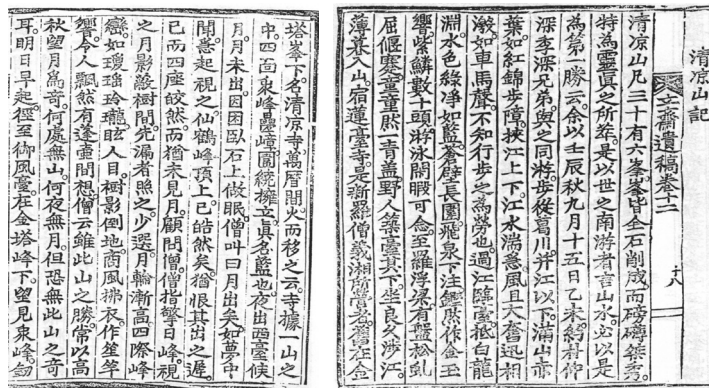 清凉山記
立齋遺稿卷十二 十八
清凉山凡三十有六峯峯皆全石削成而磅礴桀秀
特為靈眞之所莽是以世之南游者言山水必以是
為第一勝云余以壬辰秋九月十五日乙未約朴仲
深李深兄弟與之同游步從葛川并江以下滿山赤
葉如紅錦步障挾江上下江水湍急風且大奮迅相
激如車馬聲不知行步之為勞也過江臨臺抵白龍
淵水色綠净如藍蒼壁長圍飛泉下注鏗然作金玉
響紫鱗數十頭游泳閒暇可念至羅浮梁有盤松虬
屈偃蹇童童然一青盖野人築臺其下坐良久涉江
薄暮入山宿蓮臺寺是新羅僧義湘所營也舊在金
塔峯下名清凉寺萬曆間火而移之云寺據一山之
中四面衆峰疊嶂圜繞擁立眞名藍也夜出西臺候
月月未出因困臥石上做眠僧呌曰月出矣如夢中
聞急起視之仙鶴峰頂上已皓然矣猶恨其出之遲
已而四座皎然而猶未見月顧問僧僧指擎日峰視
之月影蔽樹間光漏者照之少選月輪漸高四際峰
巒如瓊瑤玲瓏眩人目樹影倒地商風拂衣作笙竿
響令人飄然有蓬壷間想僧云雖此山之勝常以高
秋望月為奇何處無山何夜無月但恐無此山之奇
耳明日早起徑至御風臺在金塔峰下望見衆峰劒